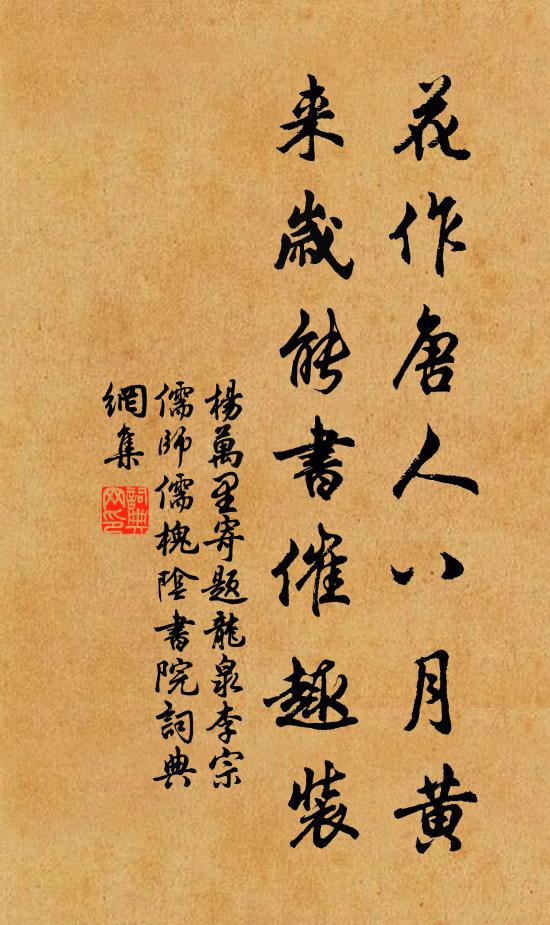 花作唐人八月黄
来歲能書催趣裝
楊萬里寄題龍泉李宗
儒師儒槐陰書院詞典
網集
詞典
网印